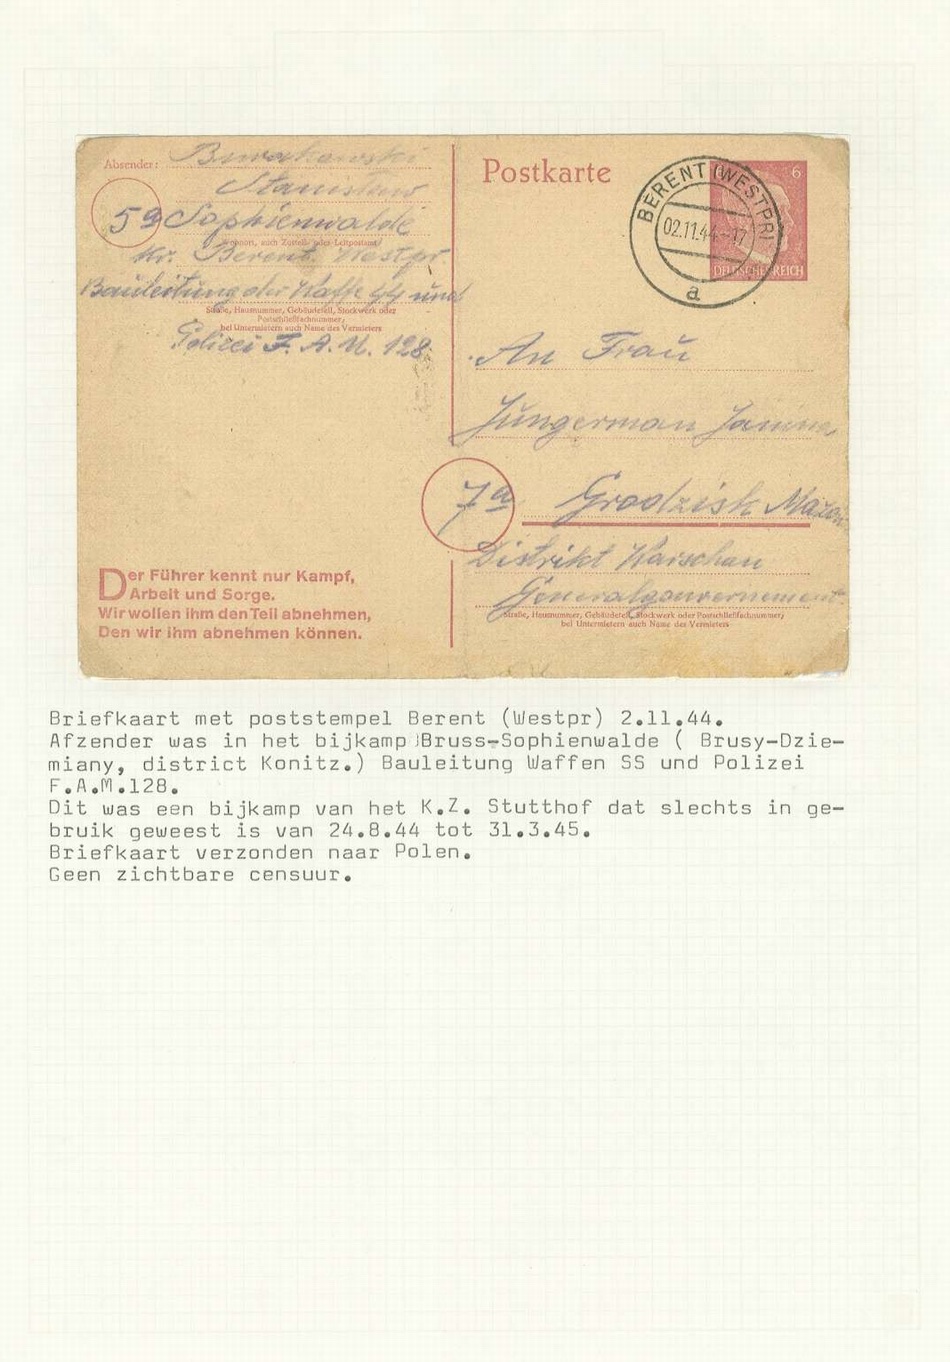 Absender: Burakowski
Stanisław
5a Sophienwalde
Wohnort, auch Zustell- oder Leitpostamt
Kr. Berent. Westpr.
Bauleitung der Waffe SS und
Straße, Hausnummer, Gebäudeteil, Stockwerk oder
Postschließfachnummer;
bei Untermietern auch Name des Vermieters
Polizei F. A. M. 128.
Der Führer kennt nur Kampf,
Arbeit und Sorge.
Wir wollen ihm den Teil abnehmen,
Den wir ihm abnehmen können.
Postkarte
BERENT (WESTPR)
02.11.44-17
a
6
DEUTSCHES REICH
An Frau
Jungerman Janina
7a Grodzisk Mazow
Distrikt Warschau
Generalgouvernement.
Straße, Hausnummer, Gebäudeteil, Stockwerk oder Postschließfachnummer;
bei Untermietern auch Name des Vermieters
Briefkaart met poststempel Berent (Westpr) 2.11.44.
Afzender was in het bijkamp Bruss-Sophienwalde ( Brusy-Dzie-
miany, district Konitz.) Bauleitung Waffen SS und Polizei
F.A.M.128.
Dit was een bijkamp van het K.Z. Stutthof dat slechts in ge-
bruik geweest is van 24.8.44 tot 31.3.45.
Briefkaart verzonden naar Polen.
Geen zichtbare censuur.